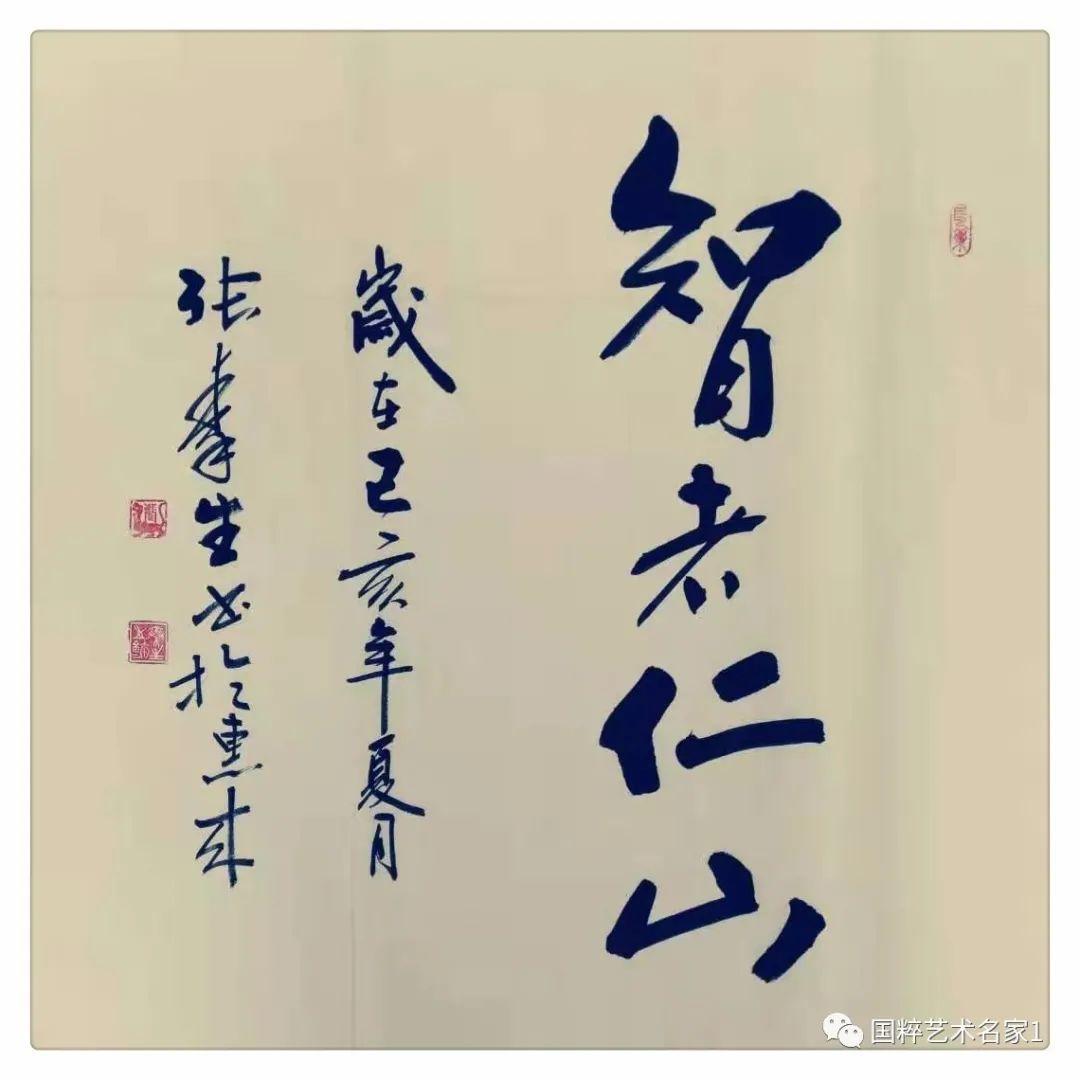 智者仁山
歲在己亥年夏月
张生书於惠来
国粹艺术名家1